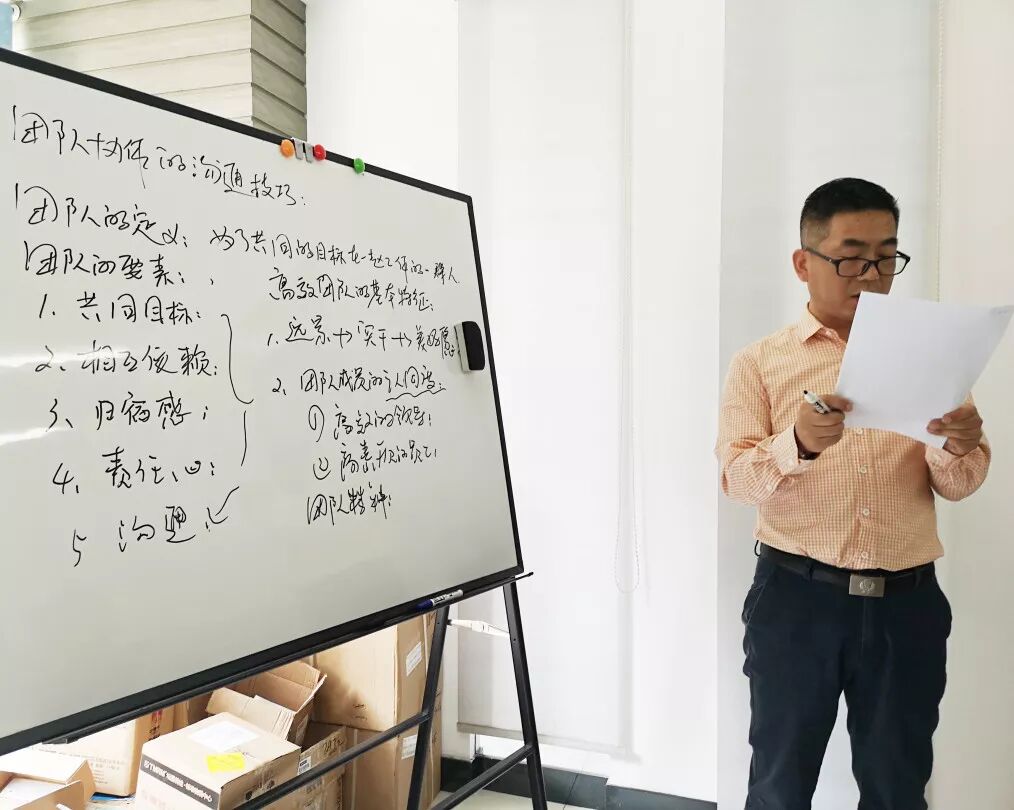 团队协作的沟通技巧：
团队的定义：为了共同的目标在一起工作的一群人
团队的要素：
1、共同目标：
2、相互依赖：
3、归宿感；
4、责任心：
5 沟通：
高效团队的基本特征：
1、远景→实干→美好愿
2、团队成员的认同度：
① 高效的领导：
② 高素
团队精神：